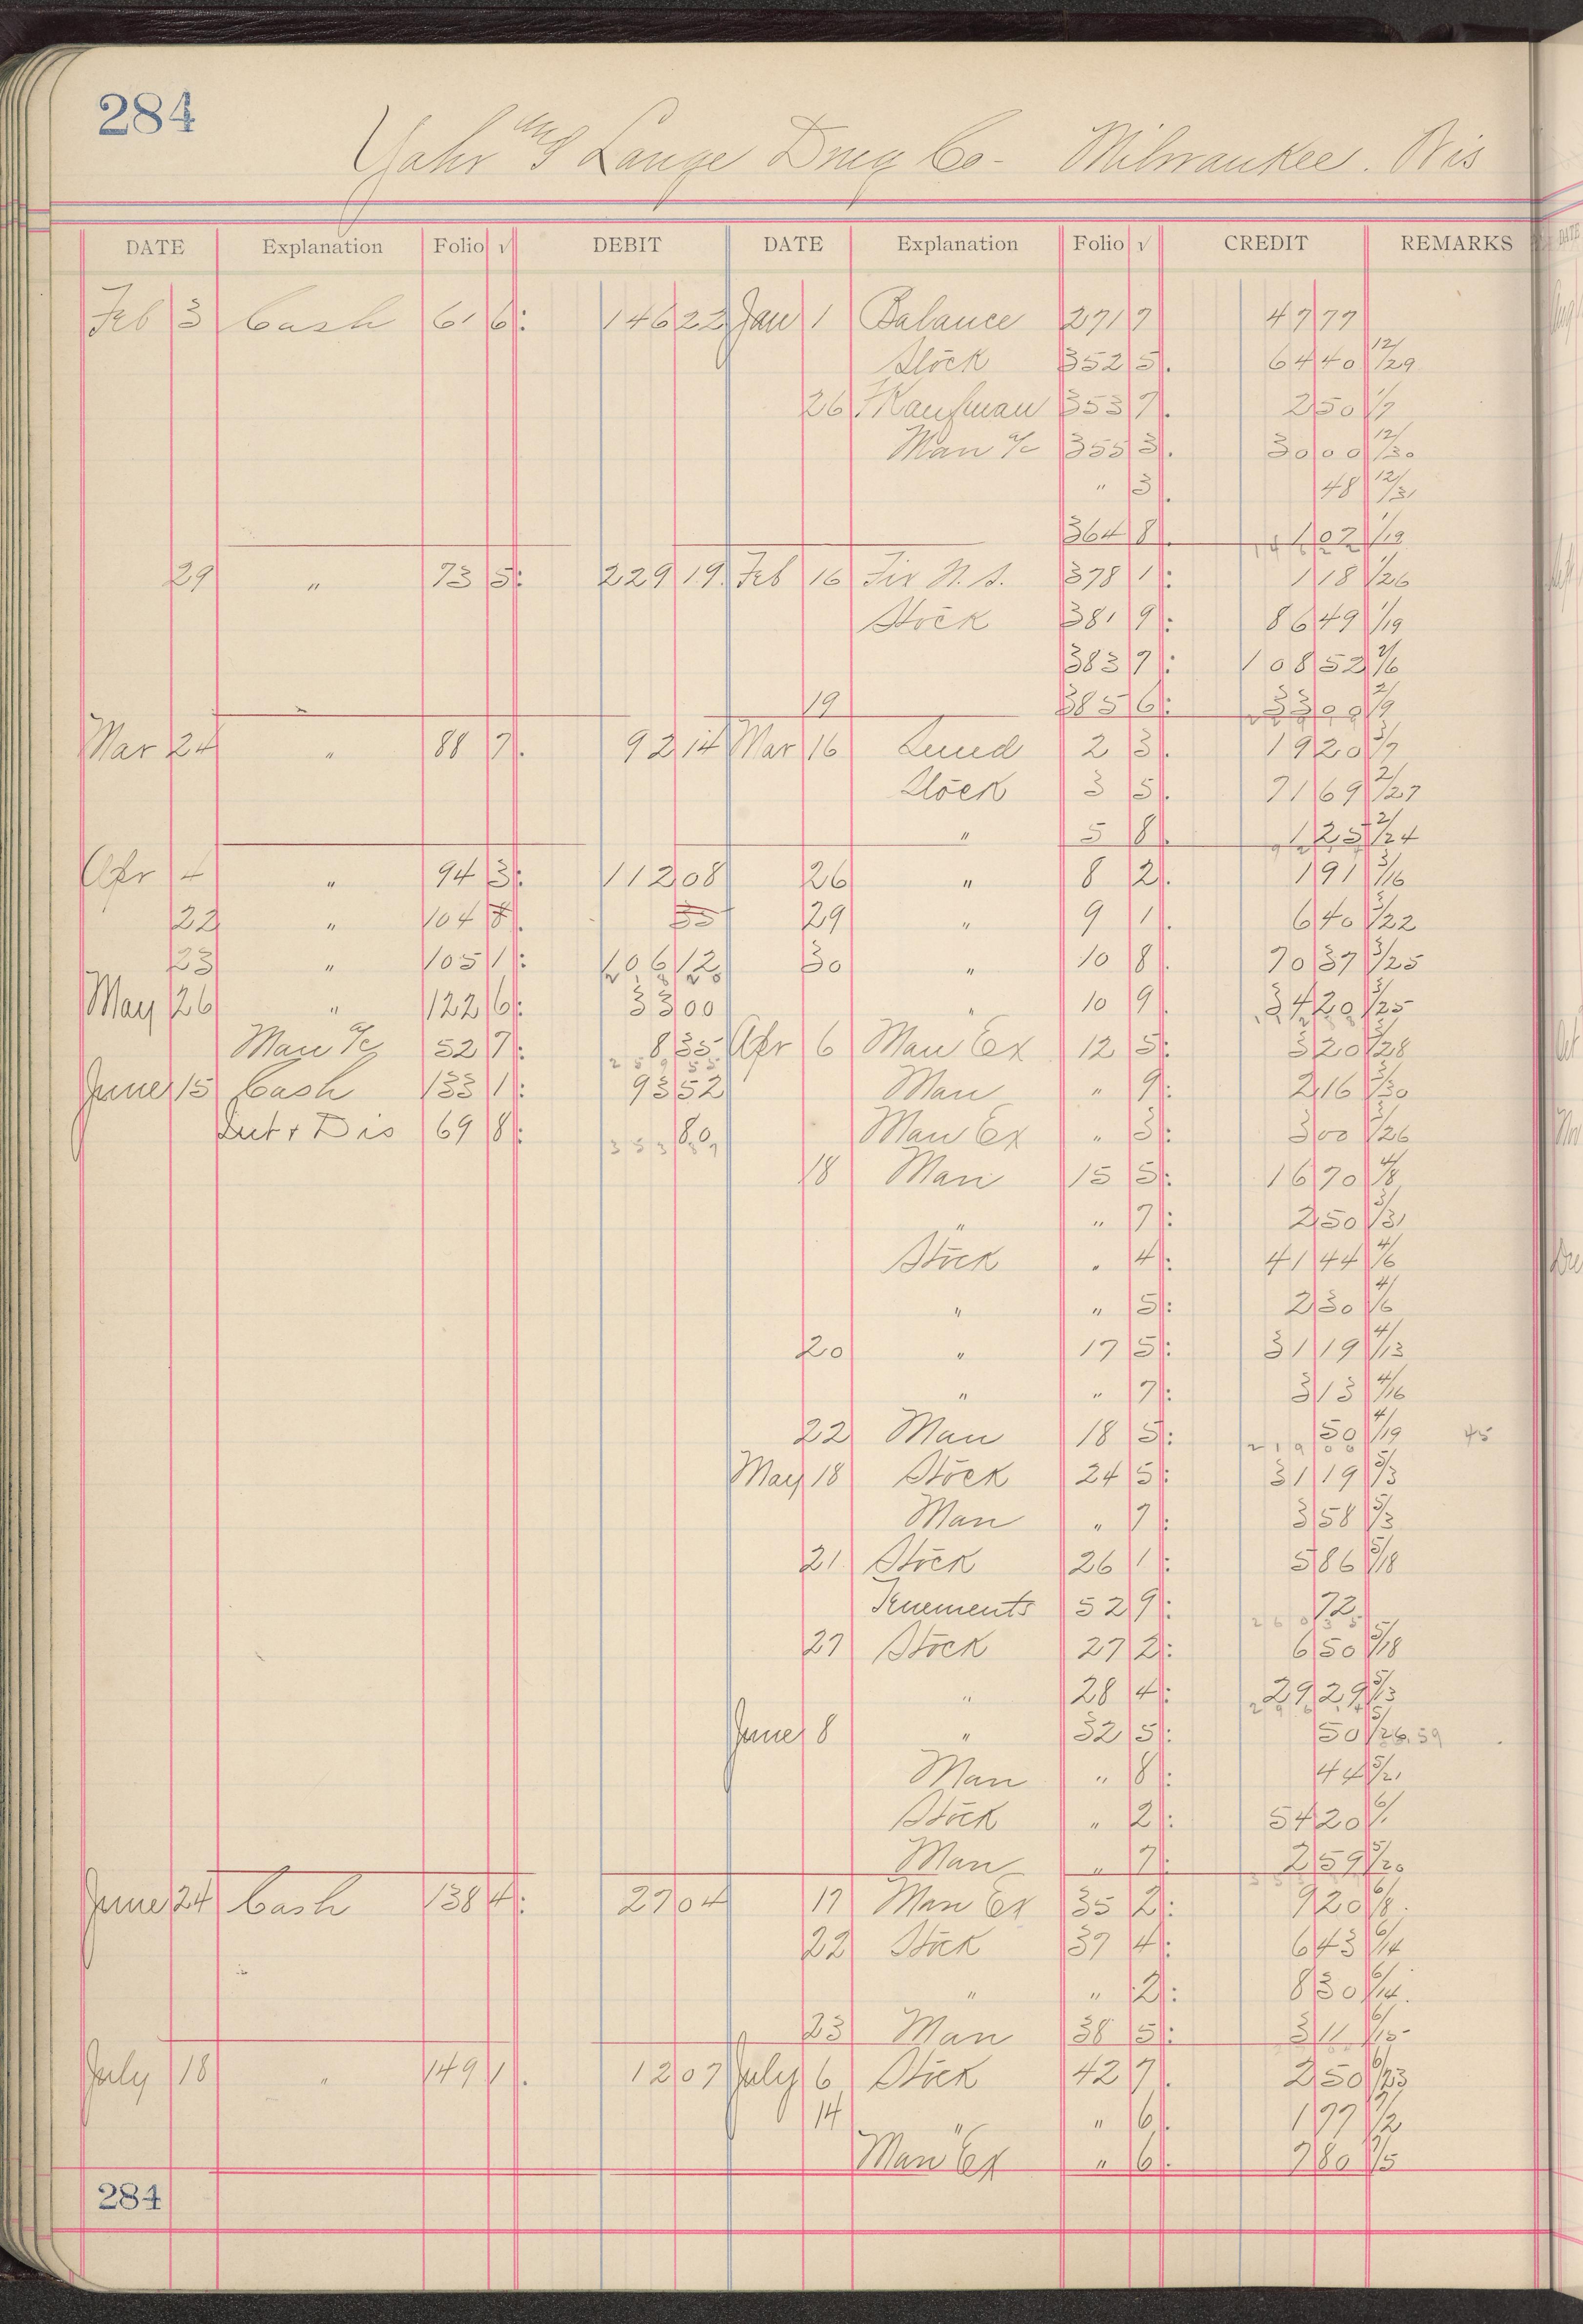 284
Yahr & Lange Drug Co - Milwaukee. Wis
DATE Explanation Folio √ DEBIT DATE Explanation Folio √ CREDIT REMARKS
Feb 3 Cash 61 6 146 22 Jan 1 Balance 271 7 47 77
Stock 352 5 64 40 12/29
26 Kaufman 353 7 2 50 1/7
Man a/c 355 3 30 00 12/30
" 3 48 12/31
364 8 1 02 1/19
29 " 73 5 229 19 Feb 16 Fix N. S. 378 1 1 18 1/26
Stock 381 9 86 49 1/19
383 7 108 52 2/6
19 385 6 33 00 2/9
Mar 24 " 88 7 92 14 Mar 16 Lund 2 3 19 20 3/7
Stock 3 5 71 69 2/27
" 5 8 1 25 2/24
Apr 4 " 94 3 112 08 26 " 8 2 1 91 3/16
22 " 104 8 35 29 " 9 1 6 40 3/22
23 " 105 1 106 12 30 " 10 8 70 37 3/25
May 26 " 122 6 33 00 " 10 9 34 20 3/25
Man a/c 52 7 8 35 Apr 6 Man Ex 12 5 3 20 3/28
June 15 Cash 133 1 93 52 Man " 9 2 16 3/30
Int & Dis 69 8 80 Man Ex " 3 3 00 3/26
18 Man 15 5 16 70 4/8
" " 7 2 50 3/31
Stock " 4 41 44 4/6
" " 5 2 30 4/6
20 " 17 5 31 19 4/13
" " 7 3 13 4/16
22 Man 18 5 50 4/19 45
May 18 Stock 24 5 31 19 5/3
Man " 7 3 58 5/3
21 Stock 26 1 5 86 5/18
Tenements 52 9 72
27 Stock 27 2 6 50 5/18
" 28 4 29 29 5/13
June 8 " 32 5 50 5/26 59
Man " 8 44 5/21
Stock " 2 54 20 6/1
Man " 7 2 59 5/20
June 24 Cash 138 4 27 04 17 Man Ex 35 2 9 20 6/8
22 Stock 37 4 6 43 6/14
" " 2 8 30 6/14
23 Man 38 5 3 11 6/15
July 18 " 149 1 12 07 July 6 Stock 42 7 2 50 6/23
14 " " 6 1 77 7/2
Man Ex " 6 7 80 7/5
284